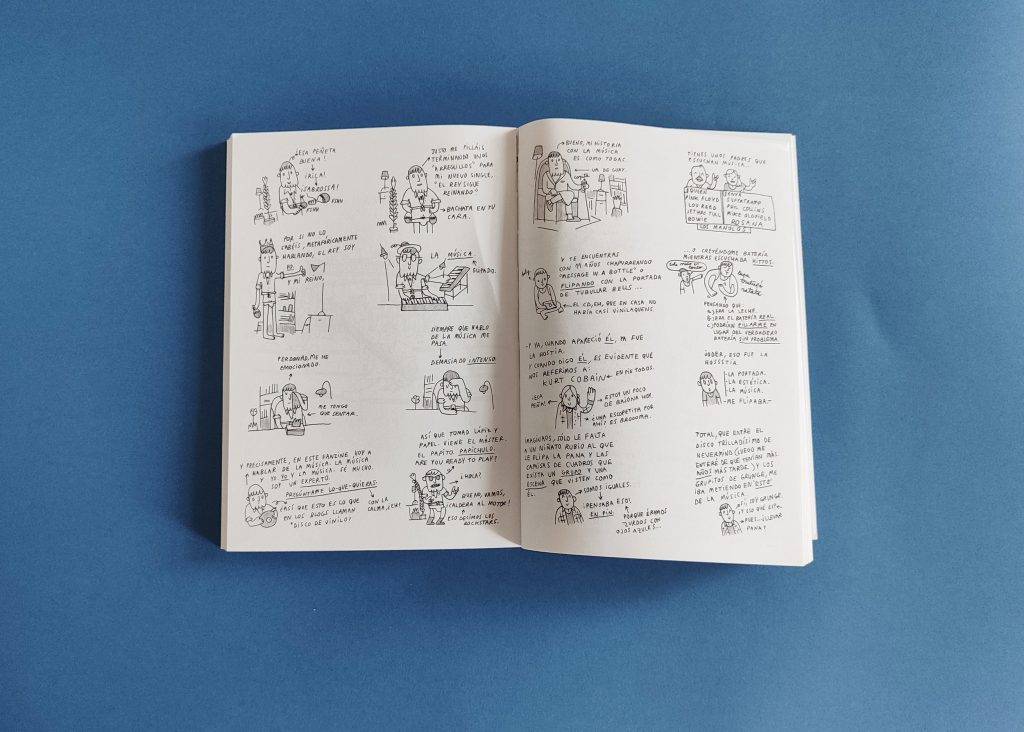 ¡ESA PEÑETA
BUENA!
¡RIÇA!
¡SABROSSA!
FIUN
FIUN
JUSTO ME PILLÁIS
TERMINANDO UNOS
"ARREGLILLOS" PARA
MI NUEVO SINGLE,
"EL REY SIGUE
REINANDO"
BACHATA EN TU
CARA.
POR SI NO LO
SABÉIS, METAFÓRICAMENTE
HABLANDO, EL REY SOY
YO.
Y MI REINO,
LA MÚSICA
FLIPADO.
PERDONAD, ME HE
EMOCIONADO.
ME TENGO
QUE SENTAR.
SIEMPRE QUE HABLO
DE LA MÚSICA ME
PASA.
DEMASIADO INTENSO
Y PRECISAMENTE, EN ESTE FANZINE VOY A
HABLAR DE LA MÚSICA. LA MÚSICA
Y YO. YO Y LA MÚSICA. SÉ MUCHO.
SOY UN EXPERTO.
PREGÚNTAME LO-QUE-QUIERAS.
CON LA
CALMA, ¿EH?
¿ASÍ QUE ESTO ES LO QUE
EN LOS BLOGS LLAMAN
"DISCO DE VINILO"?
ASÍ QUE TOMAD LÁPIZ Y
PAPEL. VIENE EL MÁSTER.
EL PAPITO. PAPICHULO.
ARE YOU READY TO PLAY?
¡HOLA!
BUENO, VAMOS,
¡CALDERA AL MOTOR!
ESO DECIMOS LOS
ROCKSTARS.
BUENO, MI HISTORIA
CON LA MÚSICA
ES COMO TODAS.
VA DE GUAY.
TIENES UNOS PADRES QUE
ESCUCHAN MÚSICA.
QUEEN
PINK FLOYD
LOU REED
JETHRO TULL
BOWIE
SUPERTRAMP
PHIL COLLINS
MIKE OLDFIELD
ROSANA
LOS MANOLOS
Y TE ENCUENTRAS
CON 11 AÑOS CHAPURREANDO
"MESSAGE IN A BOTTLE" O
FLIPANDO CON LA PORTADA
DE TUBULLAR BELLS...
EL CD, EH, QUE EN CASA NO
HABÍA CASI VINILAQUENS.
...O CREYÉNDOME BATERÍA
MIENTRAS ESCUCHABA HITTOS.
PENSANDO QUE:
A) ERA LA LECHE.
B) ERA EL BATERÍA REAL.
C) PODRÍAN PILLARME EN
LUGAR DEL VERDADERO
BATERÍA SIN PROBLEMA.
-Y YA, CUANDO APARECIÓ ÉL, YA FUE
LA HOSTIA.
Y CUANDO DIGO ÉL, ES EVIDENTE QUE
NOS REFERIMOS A:
KURT COBAIN
¡ESA
PEÑA!
ESTOY UN POCO
DE BAJONA HOY.
¿UNA ESCOPETITA POR
AHÍ? ES BROOOMA.
JODER, ESO FUE LA
HOSSSTIA.
-LA PORTADA.
-LA ESTÉTICA.
-LA MÚSICA.
-ME FLIPABA.-
IMAGINAOS, SÓLO LE FALTA
A UN NIÑATO RUBIO AL QUE
LE FLIPA LA PANA Y LAS
CAMISAS DE CUADROS QUE
EXISTA UN GRUPO Y UNA
ESCENA QUE VISTEN COMO
ÉL.
SOMOS IGUALES.
¡PENSABA ESO!
EN FIN.
PORQUE ÉRAMOS
ZURDOS CON
OJOS AZULES...
TOTAL, QUE ENTRE EL
DISCO TRILLADÍSIMO DE
NEVERMIND (LUEGO ME
ENTERÉ DE QUE TENÍAN MÁS.
AÑOS MÁS TARDE.) Y LOS
GRUPITOS DE GRUNGE, ME
IBA METIENDO EN ESTO
DE LA MÚSICA.
SOY GRUNGE.
¿Y ESO QUÉ ES?
PUES... ¿LLEVAR
PANA?